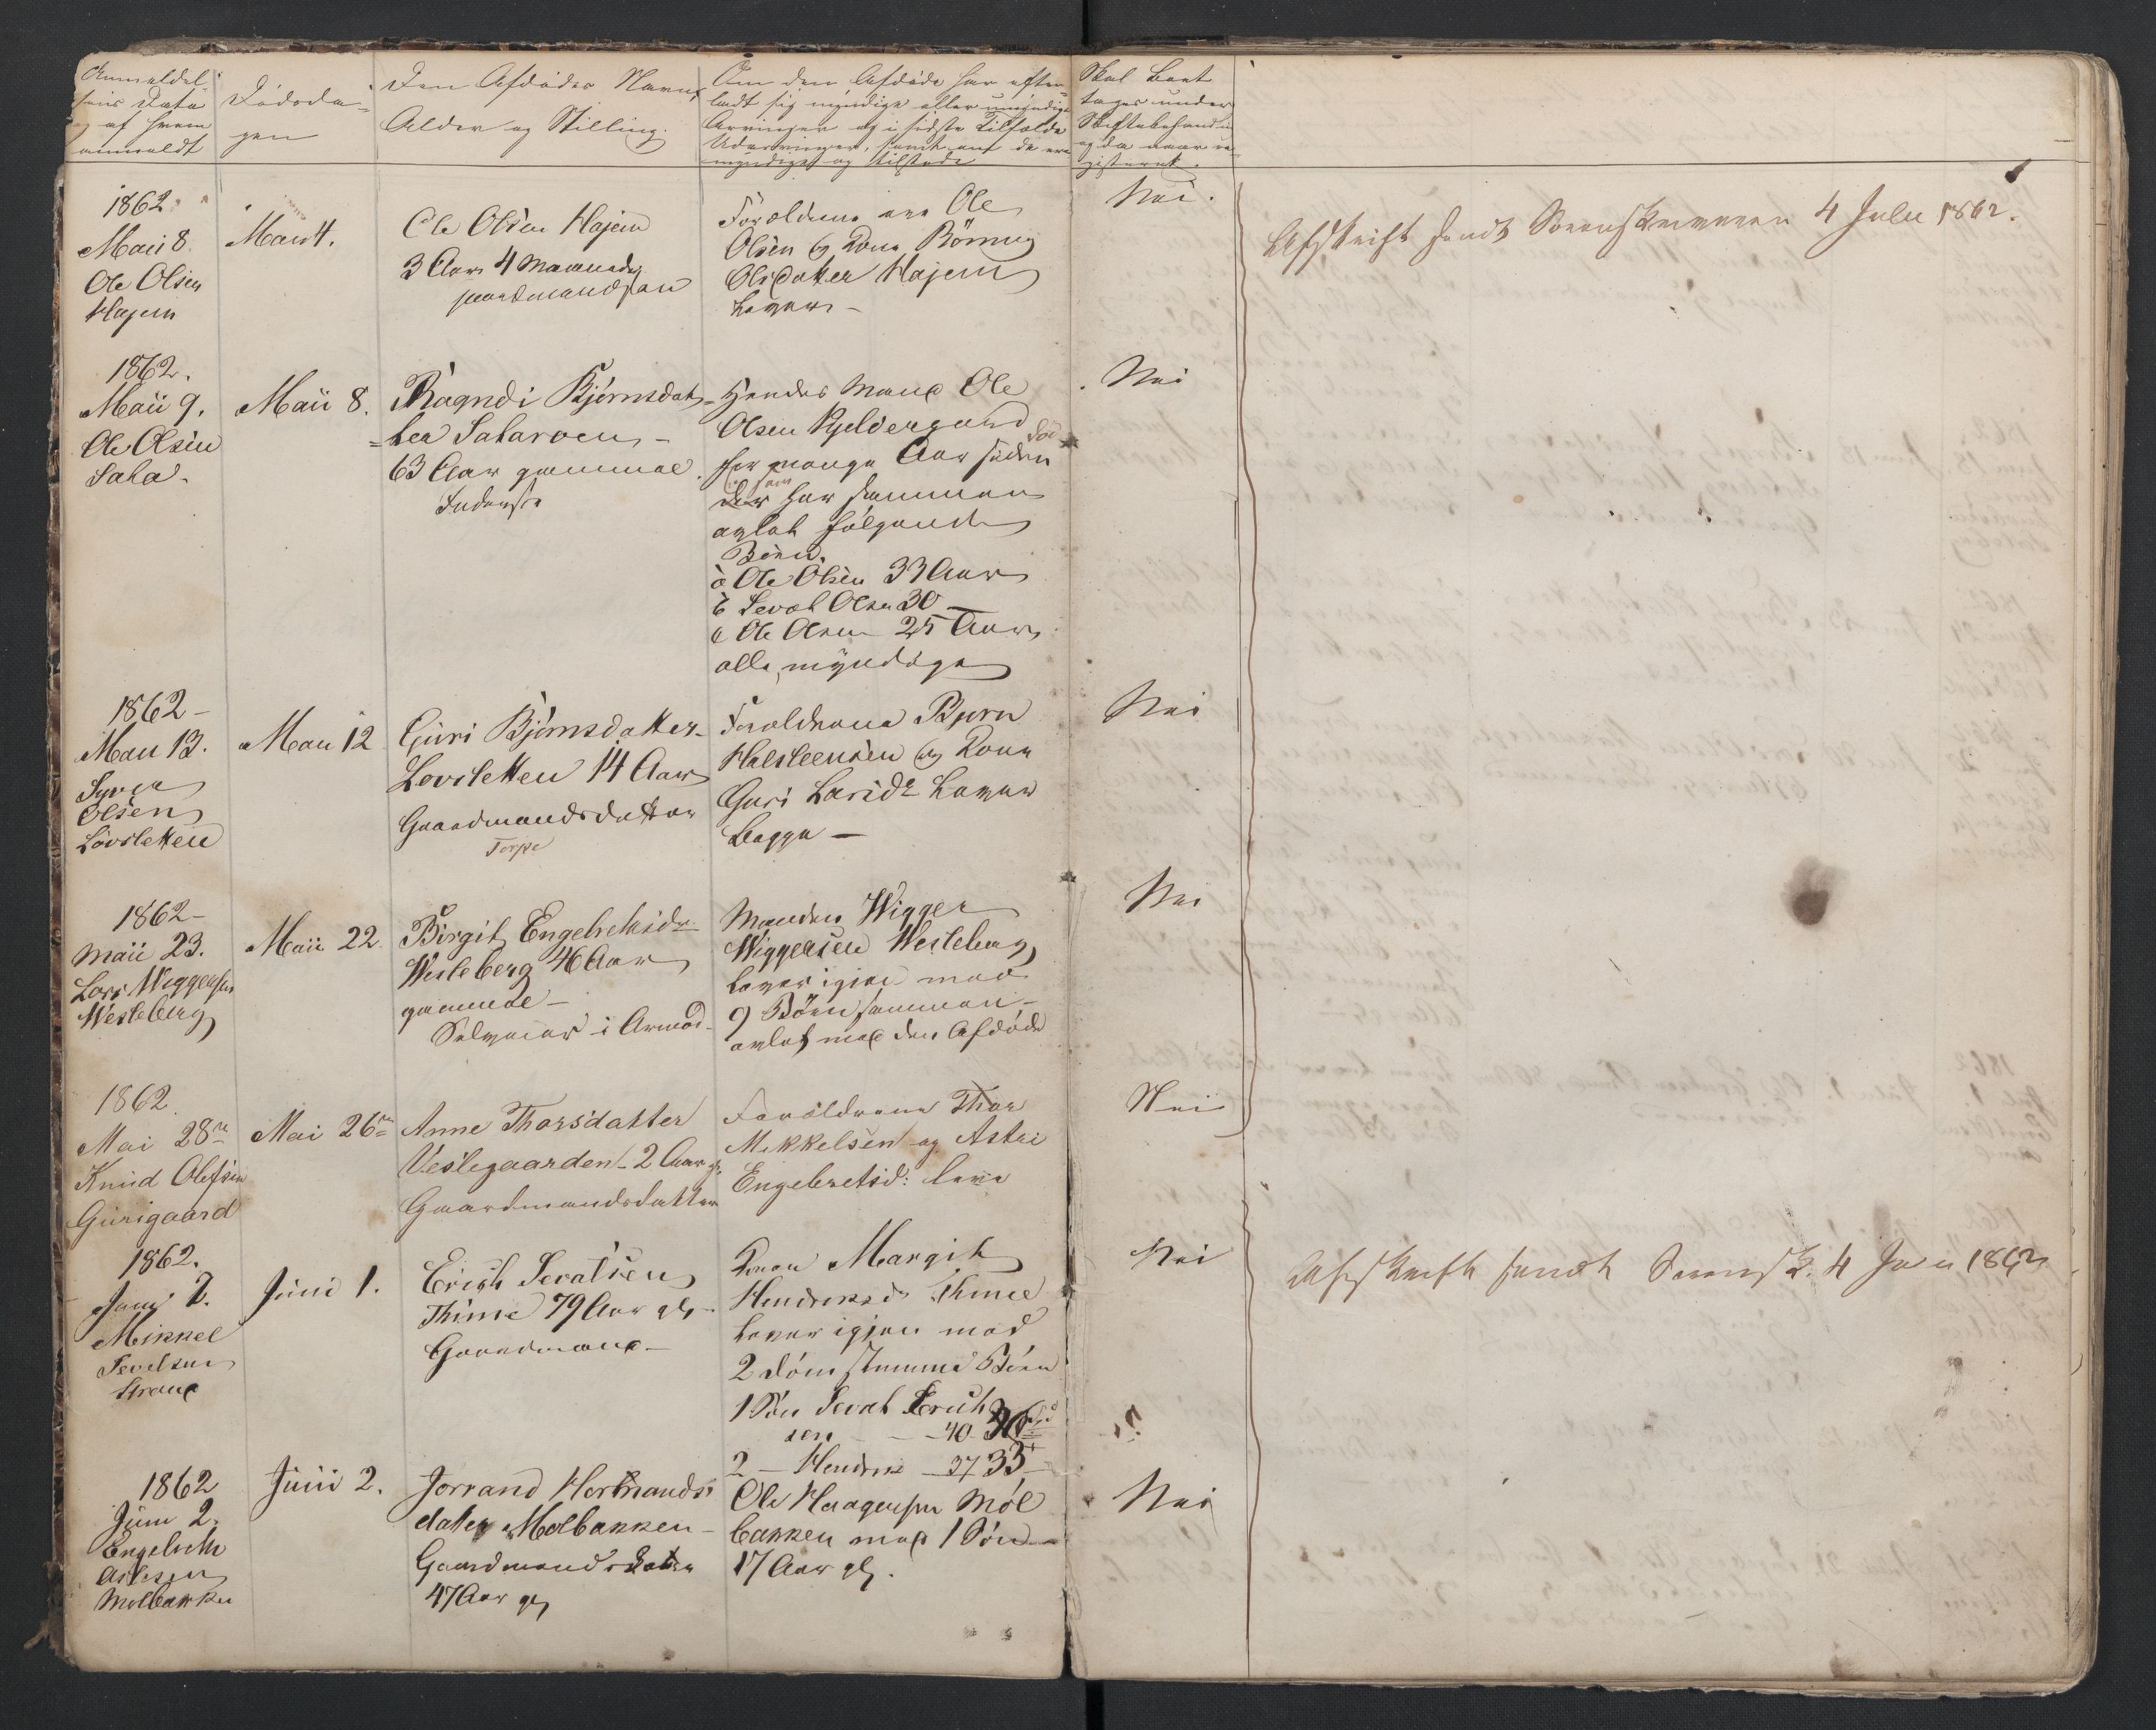 Anmeldel-
sens Dato
og af hvem
anmeldt
Dødsda-
gen
Den Afdødes Navn,
Alder og Stilling.
Om den Afdøde har efter-
ladt sig myndige eller umyndige
Arvinger og i sidste Tilfælde
Udarvinger, samt om de ere
myndige og tilstede
Skal Boet
tages under
Skiftebehandlin
og da naar re-
gistreret.
1862
Maii 8.
Ole Olsen
Hajem
Maii 4.
Ole Olsen Hajem
3 Aar 4 Maaneder
Forældrene ere Ole
Olsen og Kone Rönnug
Olsdatter Hajem
Lever –
Nei.
Afskrift sendt Sorenskriveren 4 Juli 1862.
1862.
Maii 9.
Ole Olsen
Saha.
Maii 8.
Ragndi Björnsdat-
ter Saharoen –
63 Aar gammel.
Inderste
Hendes Mand Ole
Olsen Kjeldergaard död
for mange Aar siden
som
der har sammen
avlet følgende
Börn.
a Ole Olsen 33 Aar
b Sevat Olsen 30 –
c Ole Olsen 25 Aar
alle myndige
Nei
1862 –
Maii 13.
Syver
Olsen
Lövsletten
Maii 12
Guri Björnsdatter
Lovsletten 14 Aar
Gaardmandsdatter
Torpe
Forældrene Bjørn
Halsteensen og Kone
Guri Larsdr Lever
Begge –
Nei
1862 –
Maii 23.
Lars Wiggersen
Westeberg
Maii 22
Birgit Engebretsdr
Westeberg 46 Aar
gammel –
Selveier i Armod.
Manden Wigger
Wiggersen Westeberg
Lever igjen med
9 Börn sammen-
avlet med den Afdöde
Nei
1862.
Mai 28de
Knud Olefsen
Gurigaard
Mai 26de
Anne Thorsdatter
Veslegaarden – 2 Aar gl.
Gaardmandsdatter
Forældrene Thor
Mikkelsen og Astri
Engebretsd: leve
Nei
1862.
Juni 2.
Mikkel
Sevelsen
Strand
Juni 1.
Erich Sevatsen
Thime 79 Aar gl.
Gaardmand –
Konen Margit
Hendriksdr Thime
Lever igjen med
2 dövstumme Börn
1 Sön Sevat Erich
sen – – 40 36
2 – Hendrik – 37 33 –
Nei
Afskrift sendt Sorensk. 4 Juli 1862
1862
Juni 2.
Engebreth
Aslesen
Molbakken
Juni 2.
Jorrand Hermands-
dater Molbakken –
Gaardmands
47 Aar gl
Ole Haagensen Möl
bakken med 1 Sön –
17 Aar gl.
Nei